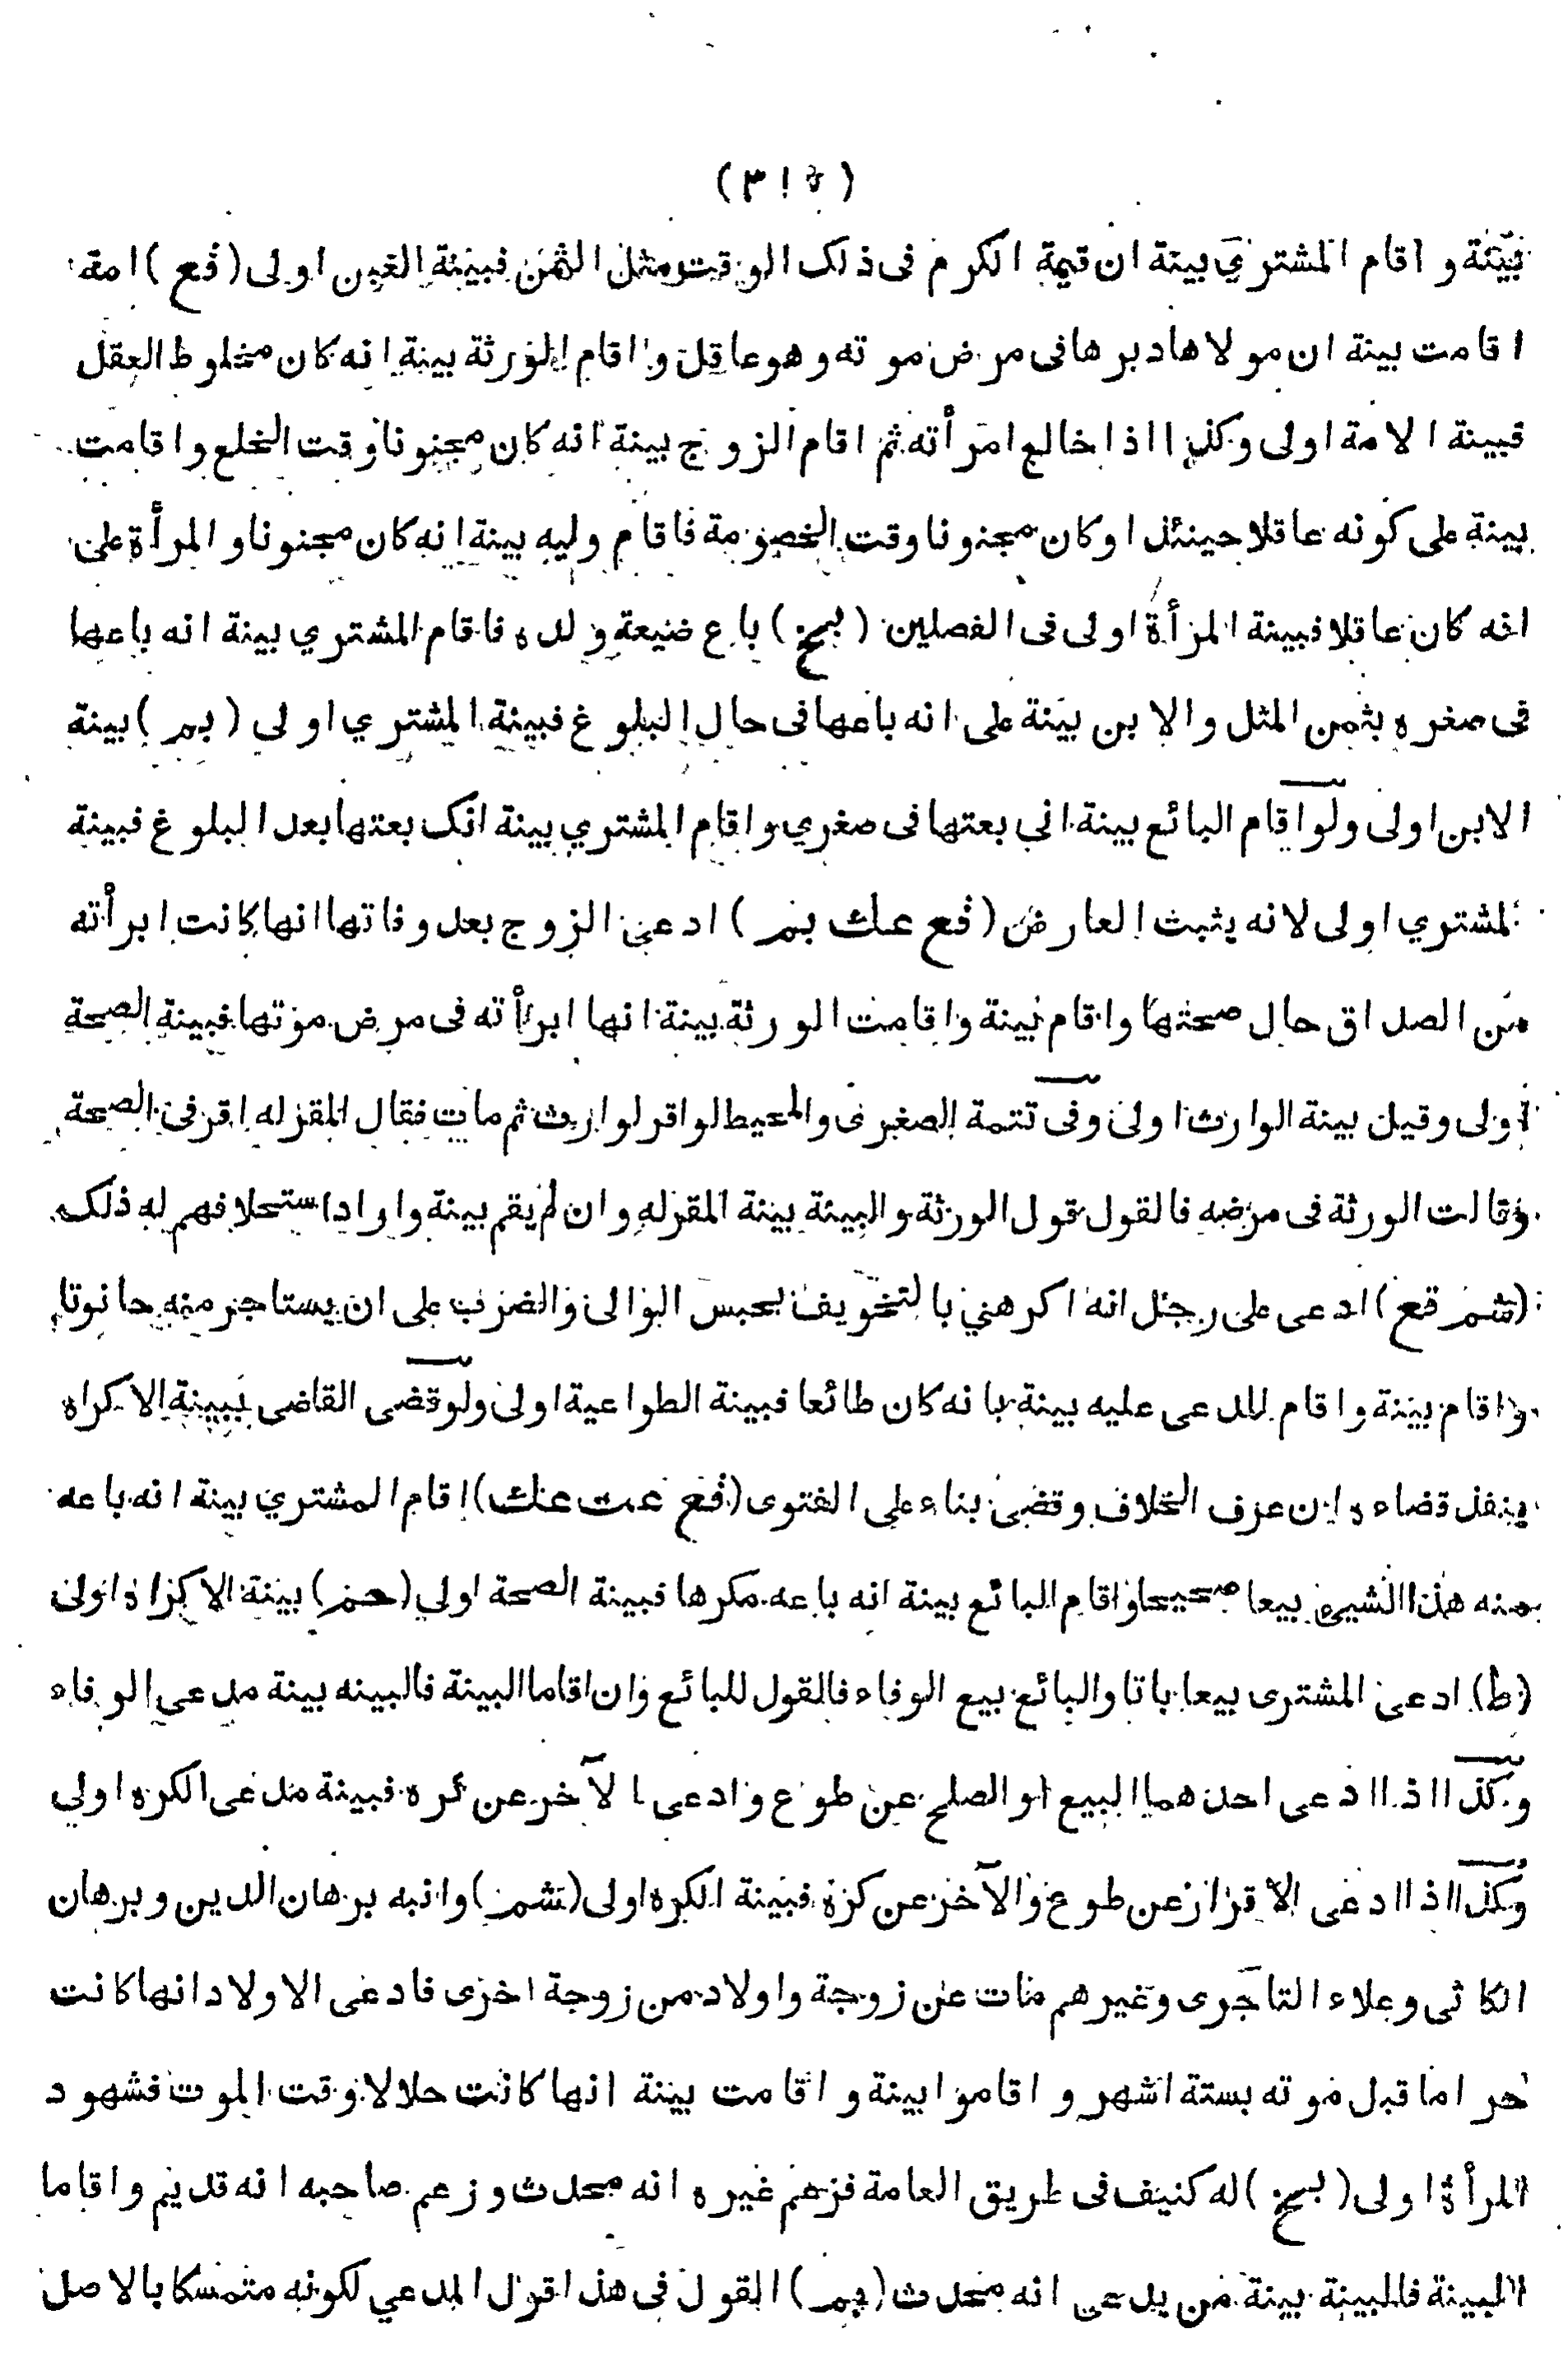 بينة واقام المشتري بينة ان قيمة الكرم فى ذلك الوقت مثل الثمن فبينة الغبن اولى (فع) امة
اقامت بينة ان مولاها دبرها فى مرض موته وهو عاقل واقام الورثة بينة انه كان مخلوط العقل
فبينة الامة اولى وكذا اذا خالع امرأته ثم اقام الزوج بينة انه كان مجنونا وقت الخلع واقامت
بينة على كونه عاقلا حينئذ او كان مجنونا وقت الخصومة فاقام وليه بينة انه كان مجنونا والمرأة على
انه كان عاقلا فبينة المرأة اولى فى الفصلين (بمخ) باع ضيعة ولده فاقام المشتري بينة انه باعها
فى صغره بثمن المثل والابن بينة على انه باعها فى حال البلوغ فبينة المشتري اولى (بم) بينة
الابن اولى ولو اقام البائع بينة اني بعتها فى صغري واقام المشتري بينة انك بعتها بعد البلوغ فبينة
المشتري اولى لانه يثبت العارض (فع عك بم) ادعى الزوج بعد وفاتها انها كانت ابرأته
من الصداق حال صحتها واقام بينة واقامت الورثة بينة انها ابرأته فى مرض موتها فبينة الصحة
اولى وقيل بينة الوارث اولى وفى تتمة الصغرى والمحيط لو اقر لوارث ثم مات فقال المقر له اقر فى الصحة
وقالت الورثة فى مرضه فالقول قول الورثة والبينة بينة المقر له وان لم يقم بينة واراد استحلافهم له ذلك
(شم قع) ادعى على رجل انه اكرهني بالتخويف بحبس الوالى والضرب على ان يستاجر منه حانوتا
واقام بينة واقام المدعى عليه بينة بانه كان طائعا فبينة الطواعية اولى ولو قضى القاضى ببينة الاكراه
ينفذ قضاءه ان عرف الخلاف وقضى بناء على الفتوى (فع عت عك) اقام المشتري بينة انه باعه
منه هذا الشيئ بيعا صحيحا واقام البائع بينة انه باعه مكرها فبينة الصحة اولى (حم) بينة الاكراه اولى
(ط) ادعى المشترى بيعا باتا والبائع بيع الوفاء فالقول للبائع وان اقاما البينة فالبينه بينة مدعى الوفاء
وكذا اذا ادعى احدهما البيع او الصلح عن طوع وادعى الآخر عن كره فبينة مدعى الكره اولى
وكذا اذا ادعى الاقرار عن طوع والآخر عن كره فبينة الكره اولى (شم) وانبه برهان الدين وبرهان
الكاثى وعلاء التاجرى وغيرهم مات عن زوجة واولاد من زوجة اخرى فادعى الاولاد انها كانت
حراما قبل موته بستة اشهر و اقاموا بينة و اقامت بينة انها كانت حلالا وقت الموت فشهود
المرأة اولى (بمخ) له كنيف فى طريق العامة فزعم غيره انه محدث وزعم صاحبه انه قديم واقاما
البينة فالبينة بينة من يدعى انه محدث (بم) القول فى هذا قول المدعي لكونه متمسكا بالاصل